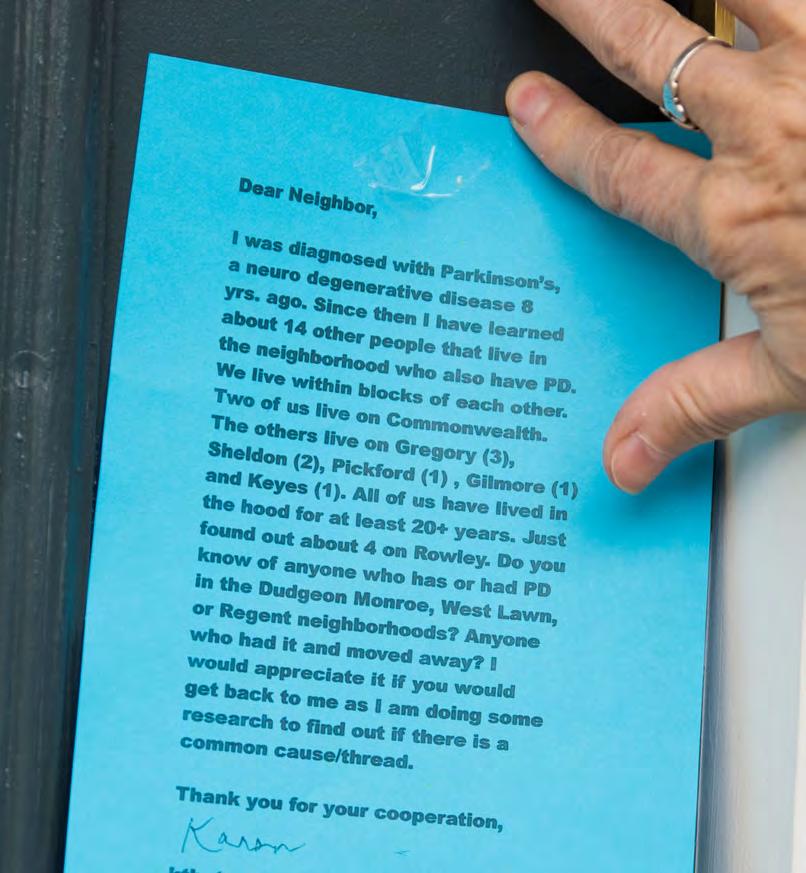 Dear Neighbor,
I was diagnosed with Parkinson's,
a neuro degenerative disease 8
yrs. ago. Since then I have learned
about 14 other people that live in
the neighborhood who also have PD.
We live within blocks of each other.
Two of us live on Commonwealth.
The others live on Gregory (3),
Sheldon (2), Pickford (1) , Gilmore (1)
and Keyes (1). All of us have lived in
the hood for at least 20+ years. Just
found out about 4 on Rowley. Do you
know of anyone who has or had PD
in the Dudgeon Monroe, West Lawn,
or Regent neighborhoods? Anyone
who had it and moved away? I
would appreciate it if you would
get back to me as I am doing some
research to find out if there is a
common cause/thread.
Thank you for your cooperation,